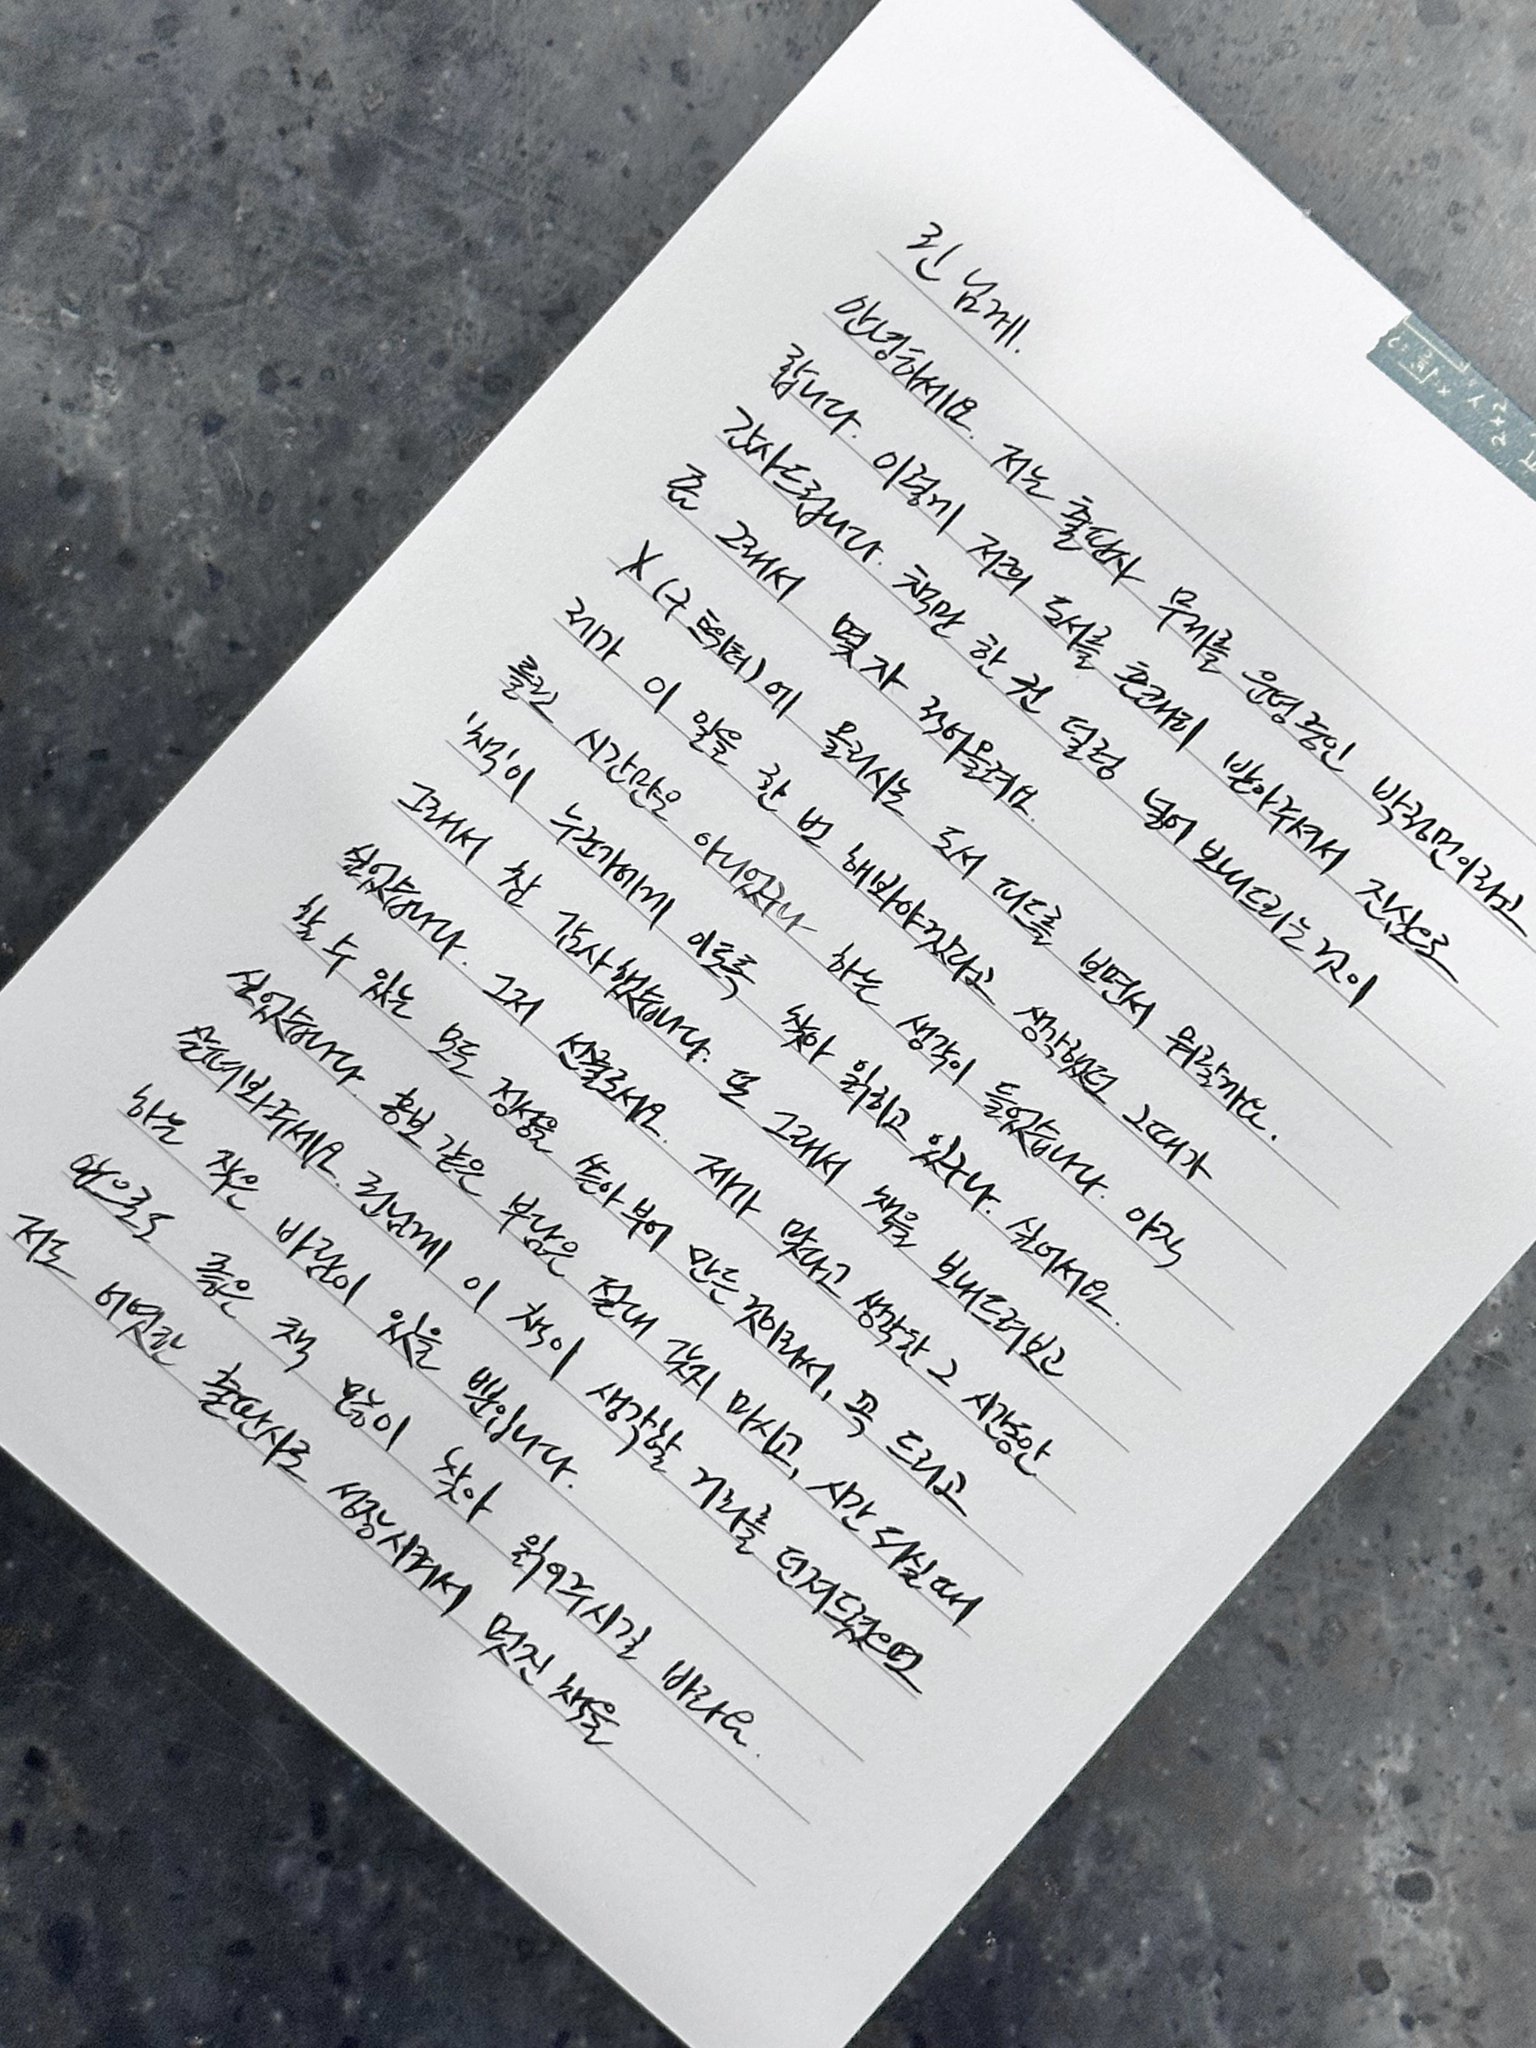 린 님께.
안녕하세요. 저는 출판사 무제를 운영중인 박정민이라고
합니다. 이렇게 저희 도서를 흔쾌히 받아주셔서 진심으로
감사드립니다. 책만 한 권 덜렁 넣어 보내드리는 것이
좀 그래서 몇 자 적어올려요.
X(구 트위터)에 올리시는 도서 피드를 보면서 뭐랄까요.
제가 이 일을 한 번 해봐야겠다고 생각했던 그때가
틀린 시간만은 아니었구나 하는 생각이 들었습니다. 아직
'책'이 누군가에게 이토록 찾아 읽히고 있구나. 싶어서요.
그래서 참 감사했습니다. 또 그래서 책을 보내드려보고
싶었습니다. 그저 선물로써요. 제가 맞다고 생각한 그 시간동안
할 수 있는 모든 정성을 쏟아부어 만든 것이라서, 꼭 드리고
싶었습니다. 홍보 같은 부담은 절대 갖지 마시고, 시간 되실 때
살펴봐주세요. 린님께 이 책이 생각할 거리를 던져드렸으면
하는 작은 바람이 있을 뿐입니다.
앞으로도 좋은 책 많이 찾아 읽어주시길 바라요.
저도 어엿한 출판사로 성장시켜서 멋진 책을